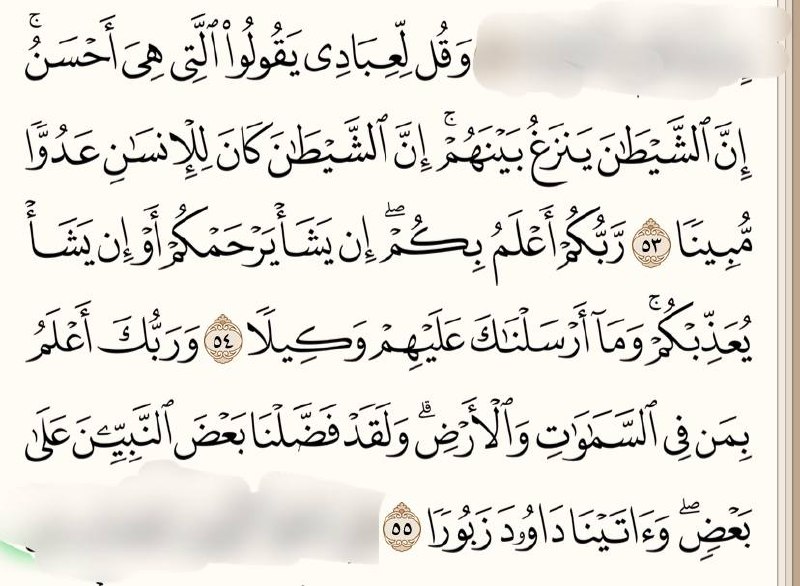 وَقُل لِّعِبَادِى يَقُولُوا۟ ٱلَّتِى هِىَ أَحْسَنُ ۚ
إِنَّ ٱلشَّيْطَـٰنَ يَنزَغُ بَيْنَهُمْ ۚ إِنَّ ٱلشَّيْطَـٰنَ كَانَ لِلْإِنسَـٰنِ عَدُوًّا
مُّبِينًا ٥٣ رَّبُّكُمْ أَعْلَمُ بِكُمْ ۖ إِن يَشَأْ يَرْحَمْكُمْ أَوْ إِن يَشَأْ
يُعَذِّبْكُمْ ۚ وَمَآ أَرْسَلْنَـٰكَ عَلَيْهِمْ وَكِيلًا ٥٤ وَرَبُّكَ أَعْلَمُ
بِمَن فِى ٱلسَّمَـٰوَٰتِ وَٱلْأَرْضِ ۗ وَلَقَدْ فَضَّلْنَا بَعْضَ ٱلنَّبِيِّـۧنَ عَلَىٰ
بَعْضٍ ۖ وَءَاتَيْنَا دَاوُۥدَ زَبُورًا ٥٥